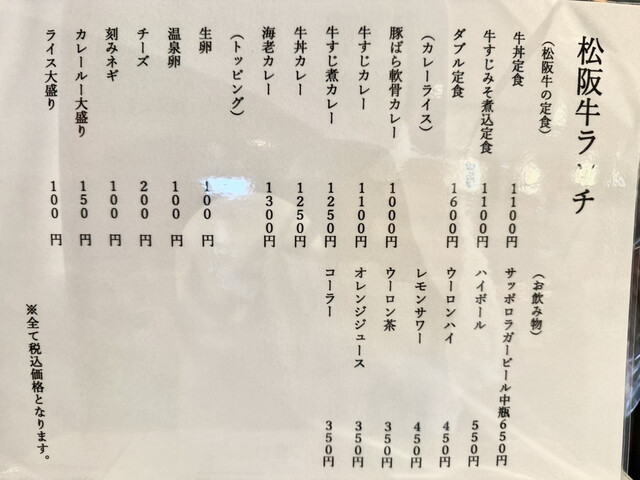 松阪牛ランチ
（松阪牛の定食）
牛丼定食 1100円
牛すじみそ煮込定食 1100円
ダブル定食 1600円
（カレーライス）
豚ばら軟骨カレー 1000円
牛すじカレー 1100円
牛すじ煮カレー 1250円
牛丼カレー 1250円
海老カレー 1300円
（トッピング）
生卵 100円
温泉卵 100円
チーズ 200円
刻みネギ 100円
カレールー大盛り 150円
ライス大盛り 100円
（お飲み物）
サッポロラガービール中瓶 650円
ハイボール 550円
ウーロンハイ 450円
レモンサワー 450円
ウーロン茶 350円
オレンジジュース 350円
コーラー 350円
※全て税込価格となります。